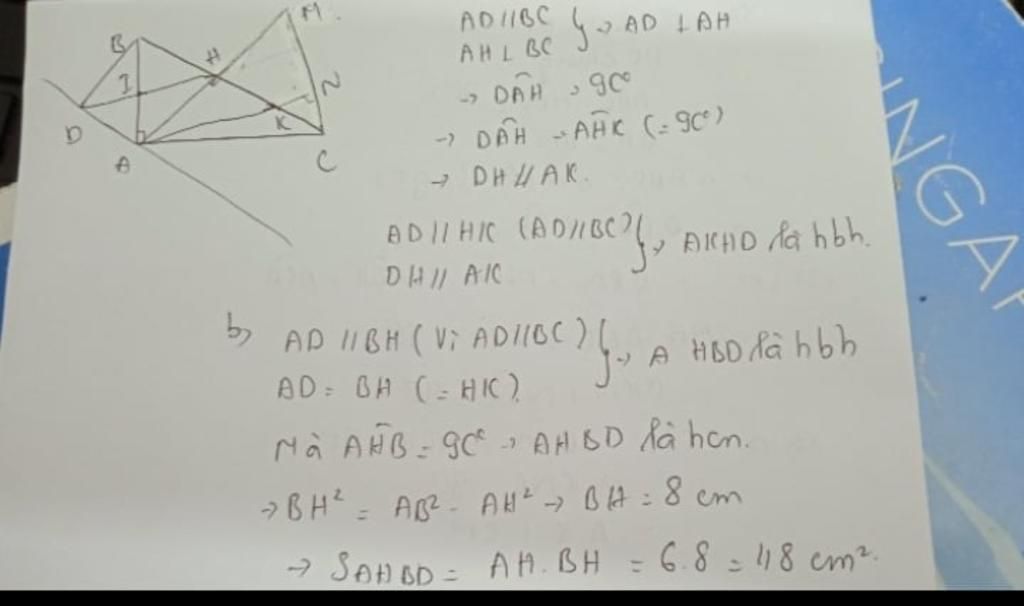 M
B
H
I
N
D
K
A
C
AD//BC } → AD ⊥ AH
AH ⊥ BC
→ DÂH = 90°
→ DÂH = AĤK (= 90°)
→ DH // AK.
AD // HK (AD//BC) } → AKHD là hbh.
DH // AK
b, AD // BH (Vì AD//BC) } → A HBD là hbh
AD = BH (= HK)
Mà AĤB = 90° → AHBD là hcn.
→ BH² = AB² - AH² → BH = 8 cm
→ SAHBD = AH.BH = 6.8 = 48 cm².
INGA